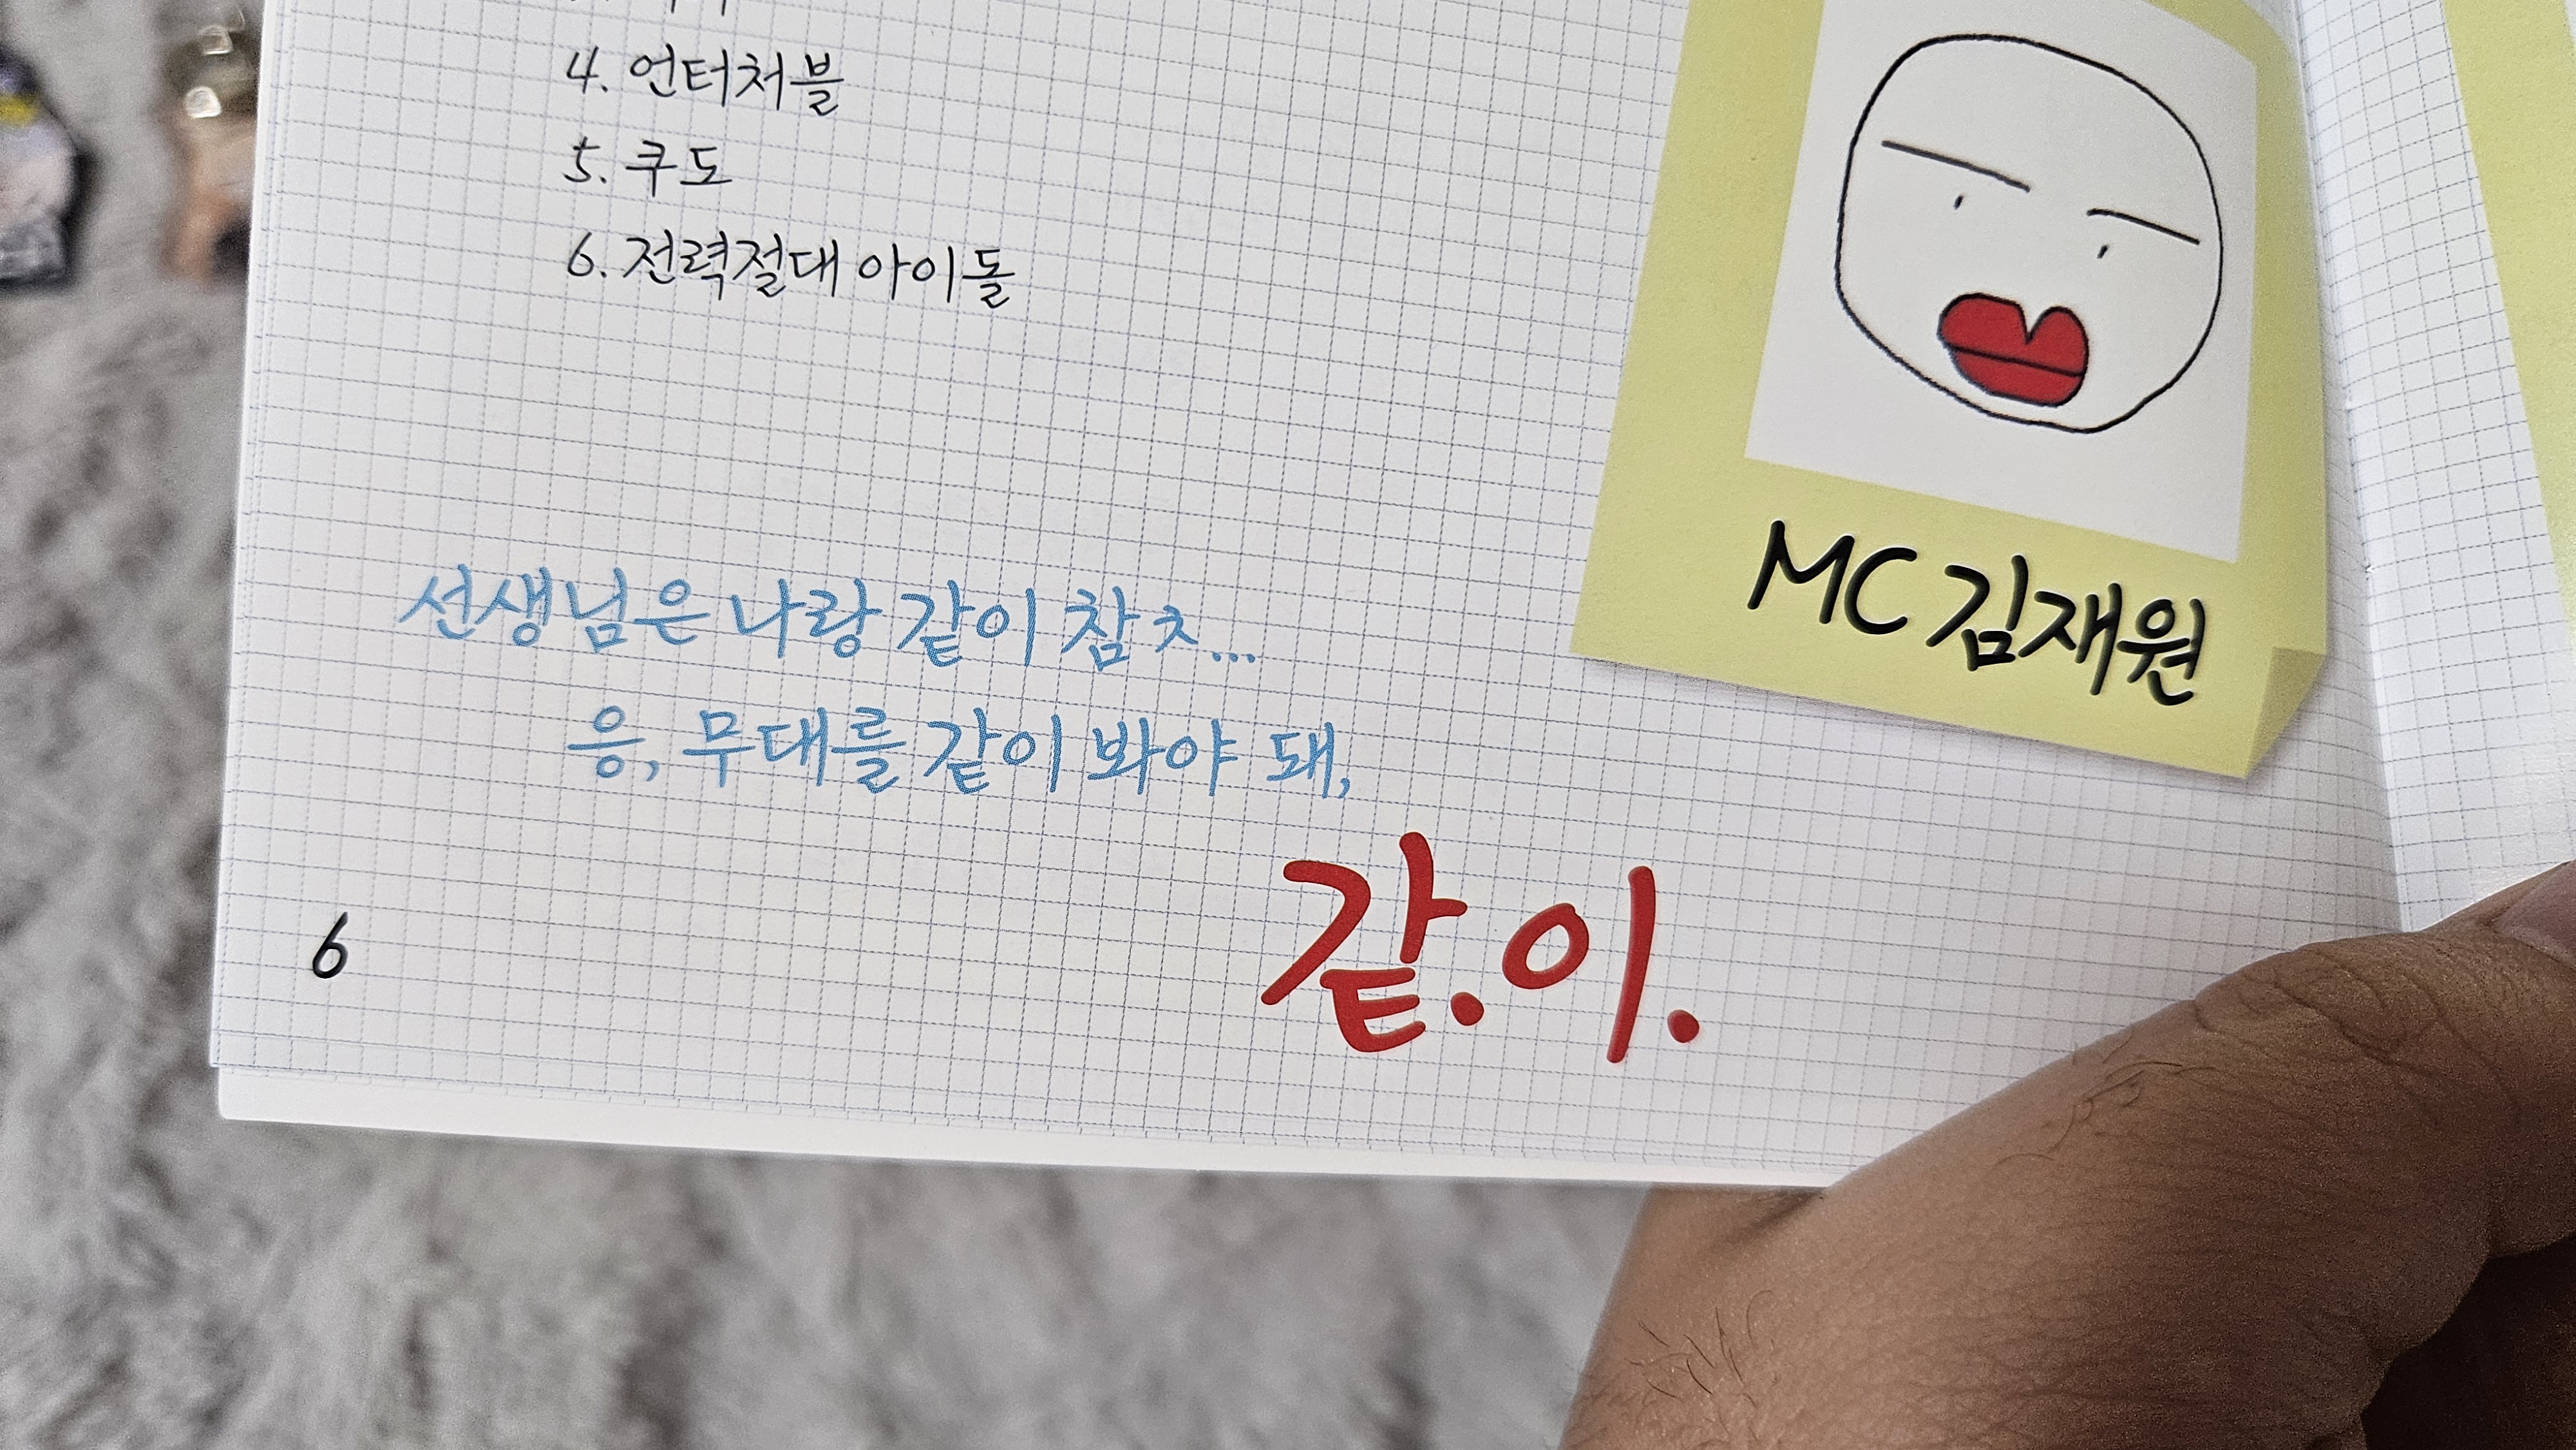 4. 언터처블
5. 쿠도
6. 전력절대 아이돌
MC 김재원
선생님은 나랑 같이 참ㅊ...
응, 무대를 같이 봐야 돼,
같.이.
6